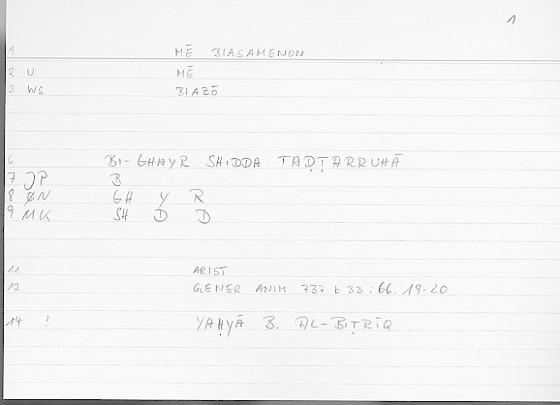 1
1 MĒ BIASAMENON
2 U MĒ
3 WS BIAZŌ
6 BI-GHAYR SHIDDA TAḌṬARRUHĀ
7 JP B
8 ØN GH Y R
9 MK SH D D
11 ARIST
12 GENER ANIM 737 b 33 : 66. 19-20
14 ? YAḤYĀ B. AL-BIṬRĪQ